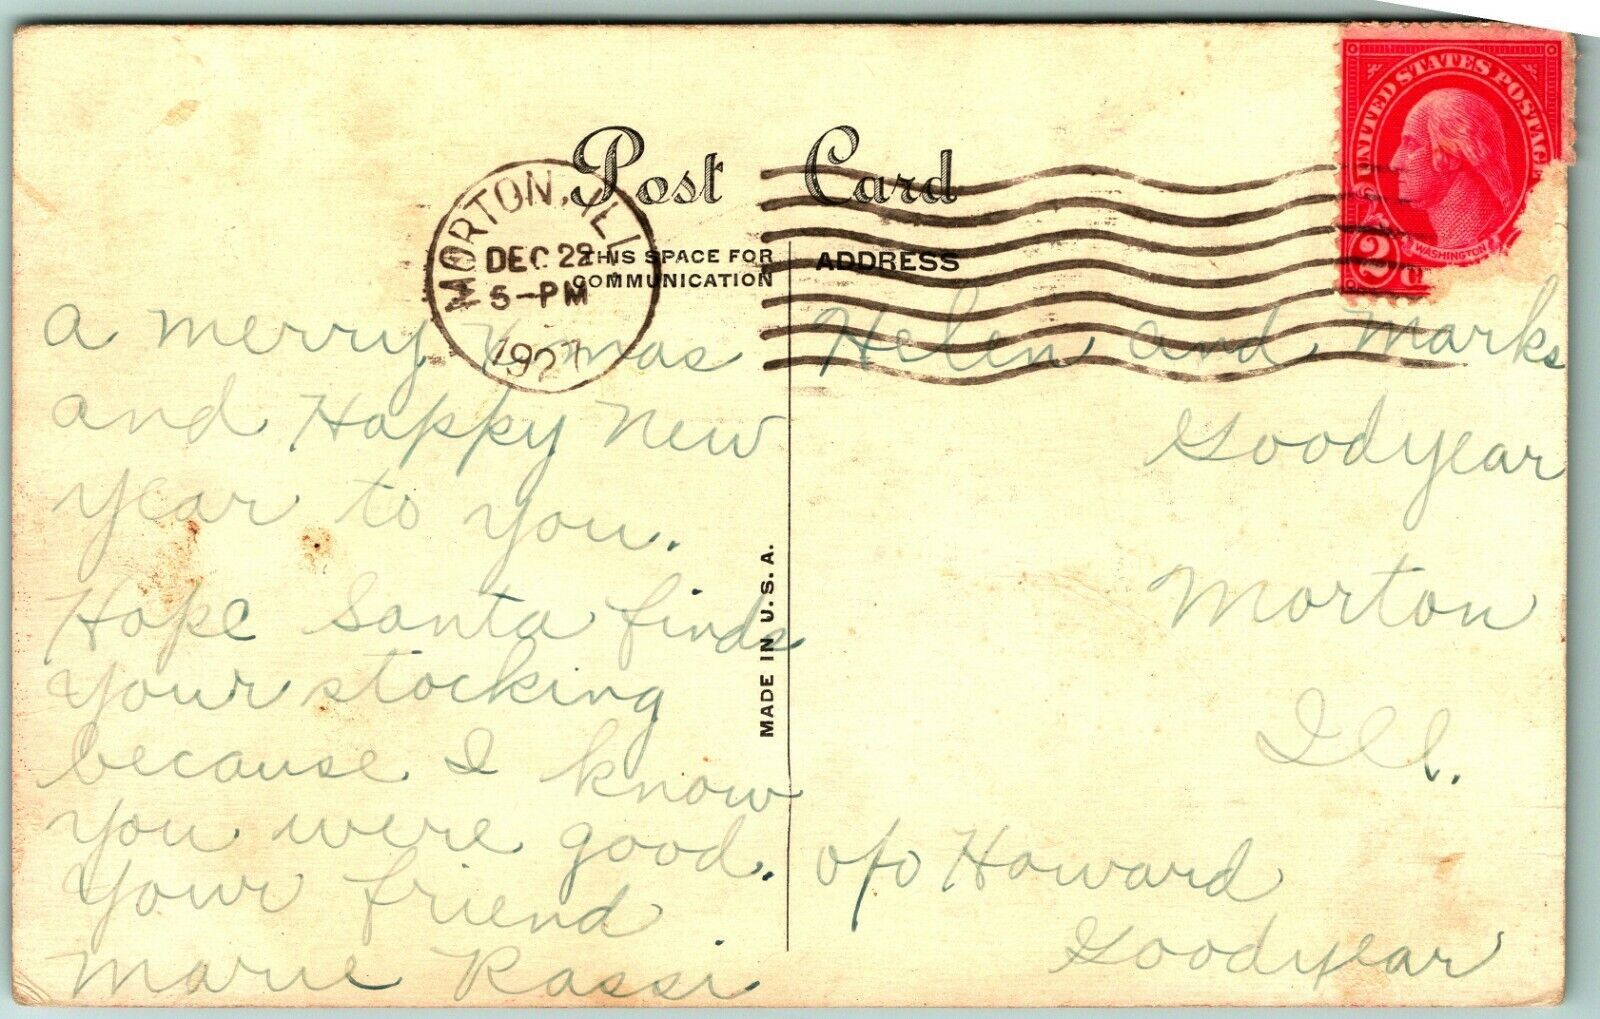 Post Card
MORTON, ILL
DEC 22
5-PM
1927
THIS SPACE FOR
COMMUNICATION
ADDRESS
UNITED STATES POSTAGE
WASHINGTON
2
MADE IN U.S.A.
a merry Xmas
and Happy New
year to you.
Hope Santa finds
your stocking
because I know
you were good.
Your friend
Marie Rassi
Helen and Marks
Goodyear
Morton
Ill.
o/o Howard
Goodyear